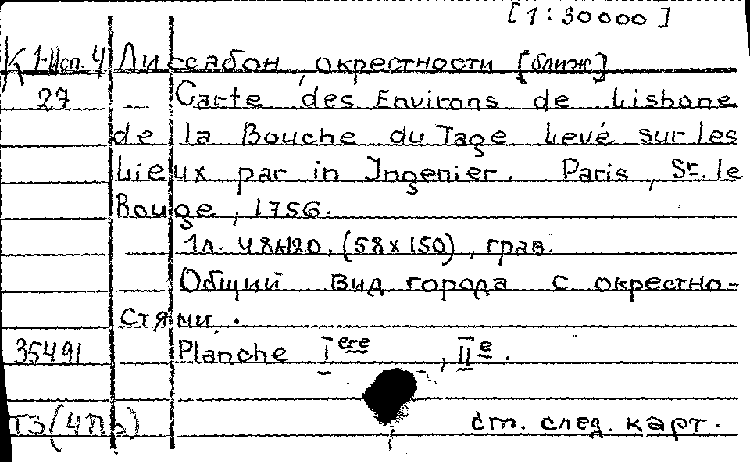 [1:30000]
К 1-Исп. 4 Лиссабон, окрестности [ближ]
27 Carte des Environs de Lisbone
de la Bouche du Tage Levé sur les
Lieux par in Ingenier. Paris, Sr. le
Rouge, 1756.
1л. 48х120. (58х150), грав.
Общий вид города с окрестно-
стями.
35491 Planche Iere, IIe.
ТЗ(4Пb) см. след. карт.